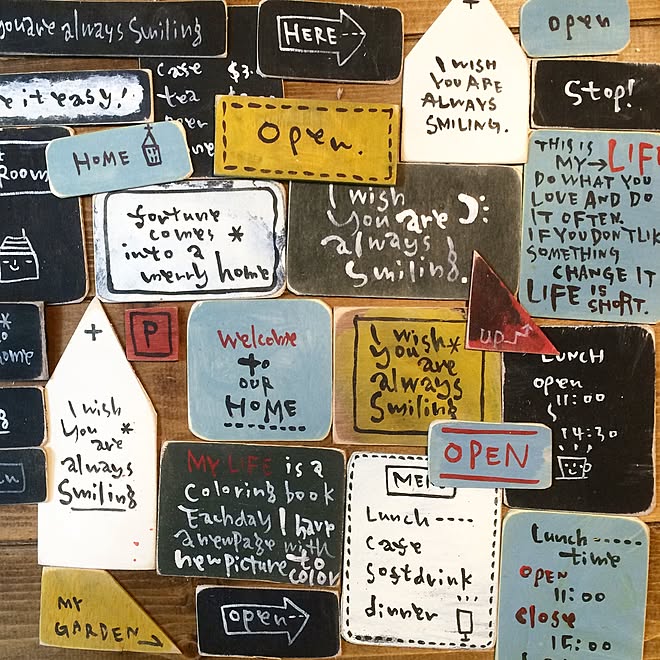 you are always Smiling
HERE
I WISH
YOU ARE
ALWAYS
SMILING.
open
case $3.
tea
Stop!
e it easy!
open.
HOME
Room
THIS IS
MY→LIFE
DO WHAT YOU
LOVE AND DO
IT OFTEN.
IF YOU DON'T LIK
SOMETHING
CHANGE IT
LIFE IS
SHORT.
fortune
comes *
into a
merry home
I wish
you are
always
Smiling.
UP
P
Welcome
to
OUR
HOME
I wish*
you are
always
Smiling
LUNCH
open
11:00
14:30
home
I wish
you *
are
always
Smiling
OPEN
MY LIFE is a
Coloring book
Each day I have
a new page with
new picture to
color
MEN
Lunch ----
case
Sostdrink
dinner
Lunch -----
time
OPEN
11:00
close
15:00
MY
GARDEN
open